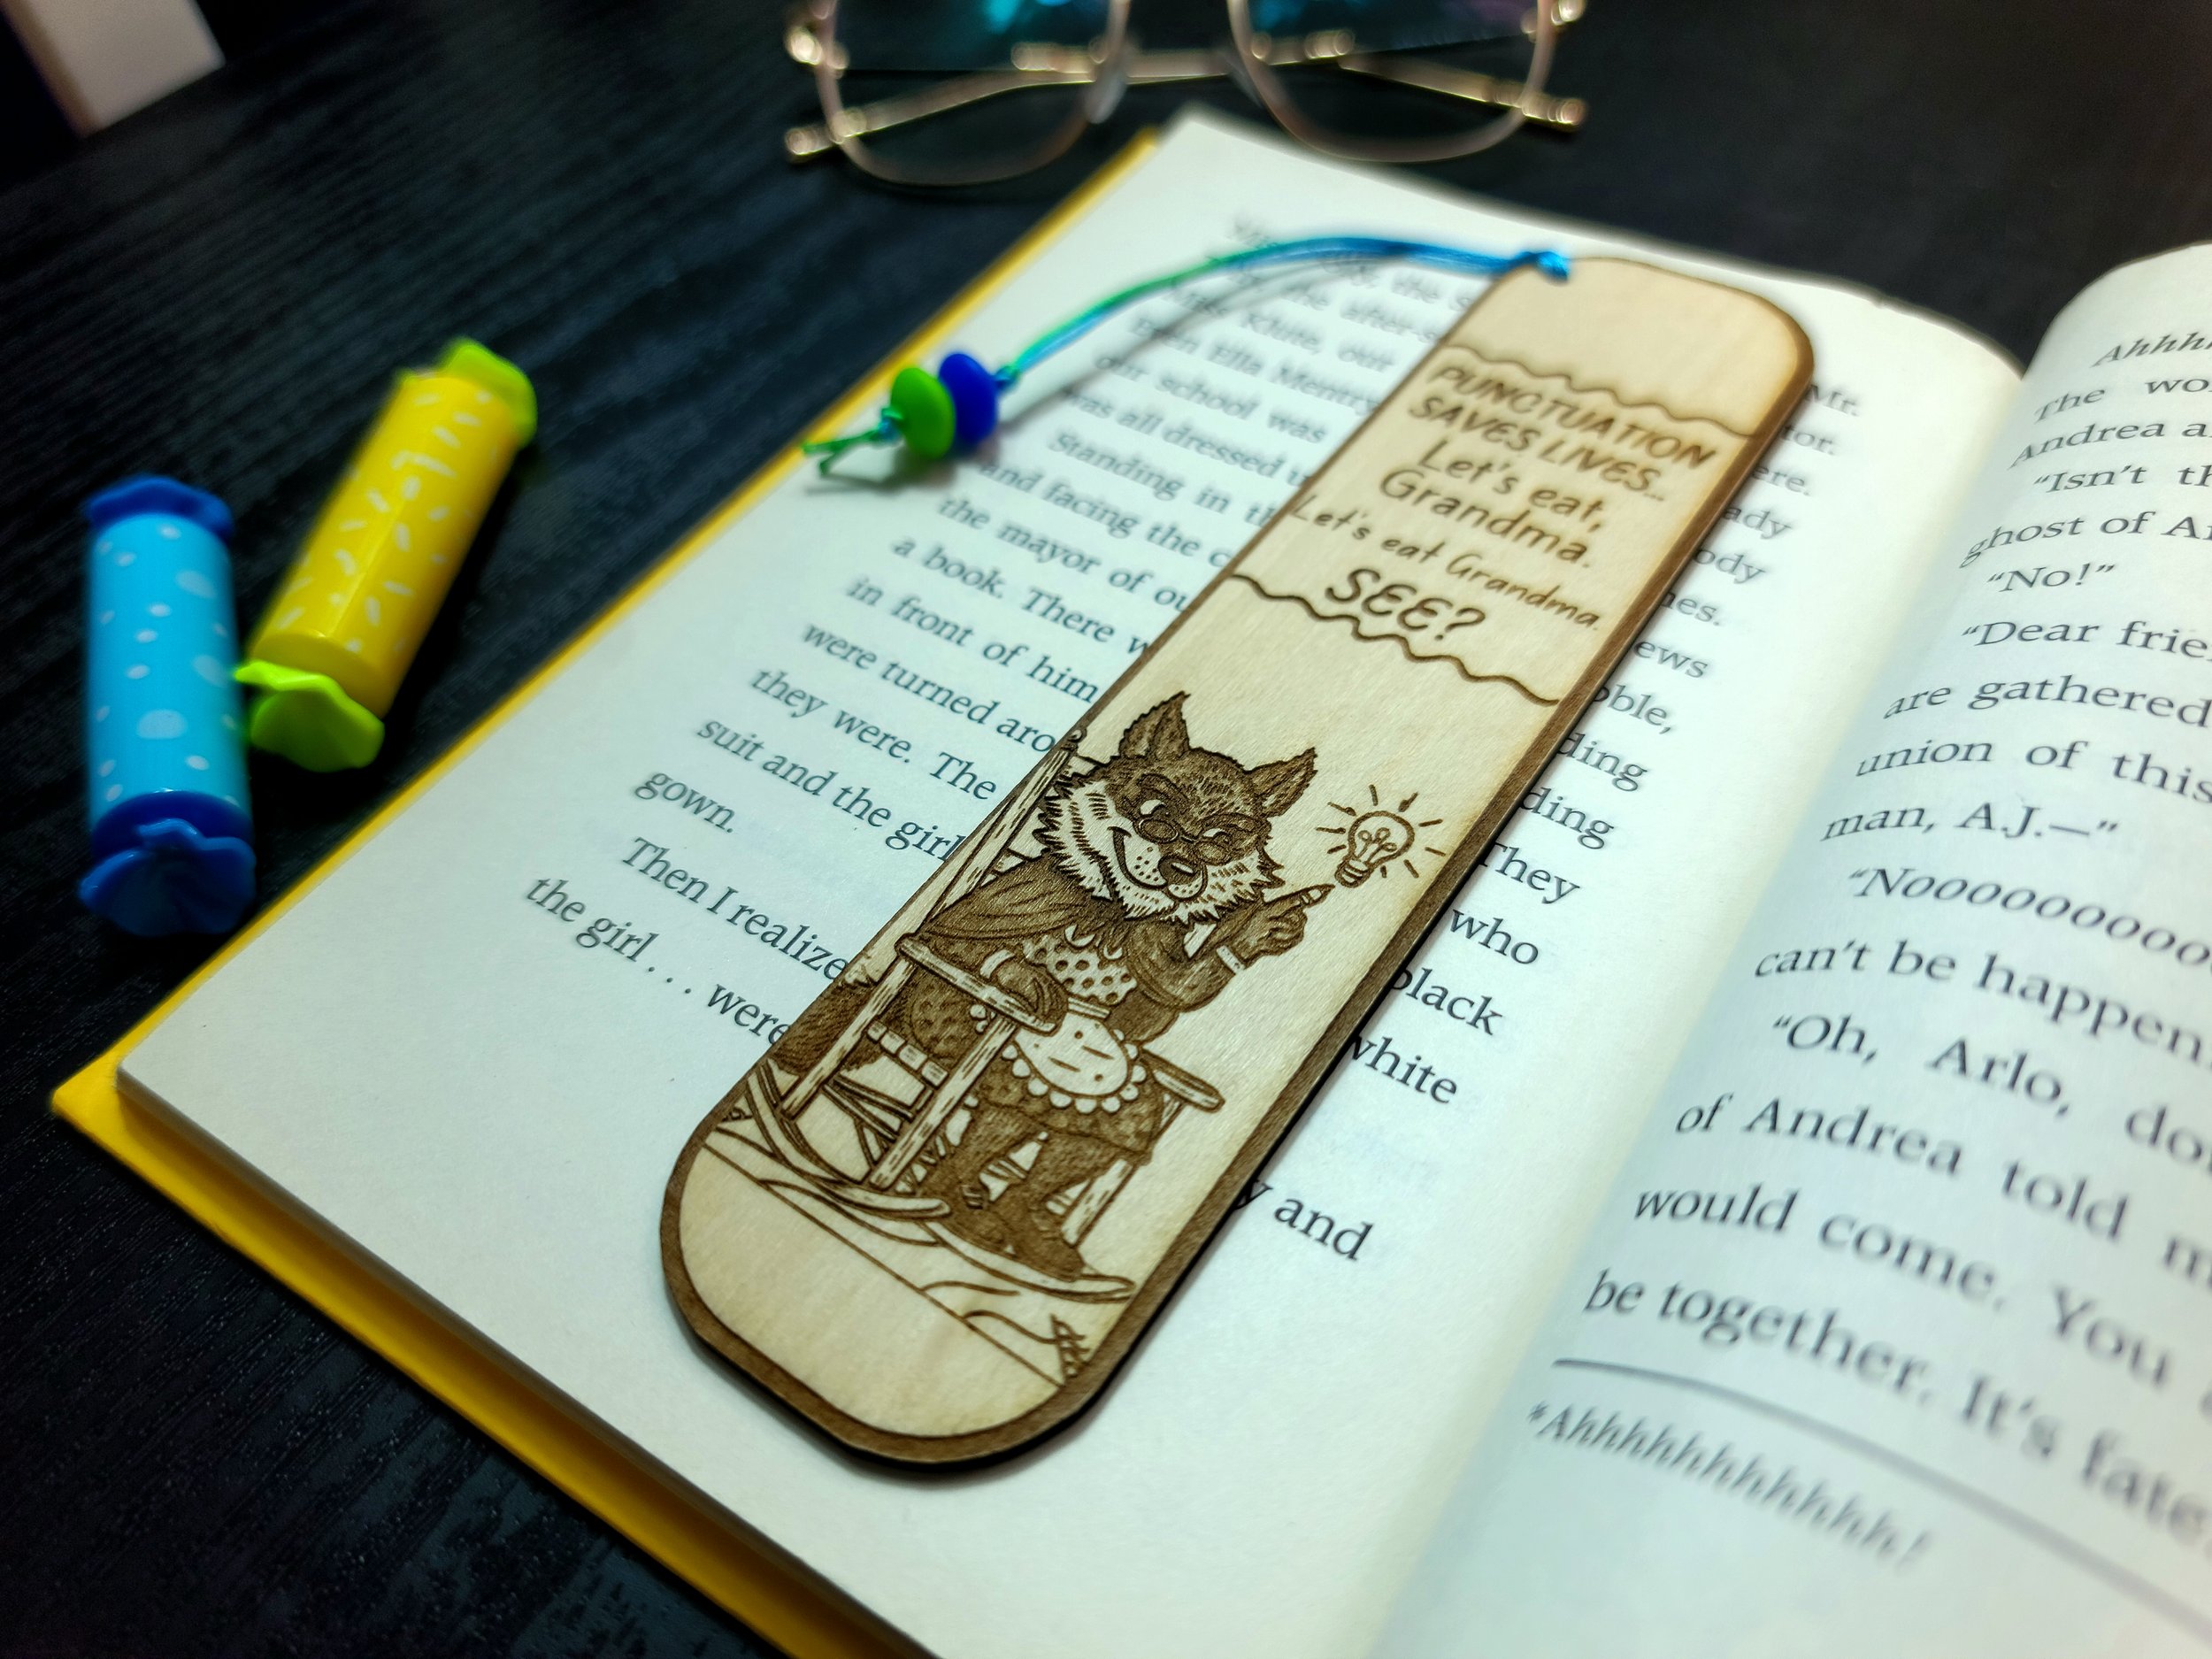 PUNCTUATION
SAVES LIVES...
Let's eat,
Grandma.
Let's eat Grandma.
SEE?
the s
Mr.
the after-s
tor.
Klute, our
ere.
Ella Mentry
ady
our school was
ody
was all dressed u
nes.
Standing in th
ews
and facing the c
oble,
the mayor of ou
ding
a book. There w
ding
in front of him
They
were turned arou
who
they were. The
black
suit and the girl
white
gown.
Then I realize
y and
the girl . . . were
Ahhhh
The wo
Andrea a
“Isn’t th
ghost of A
“No!”
“Dear frie
are gathered
union of this
man, A.J.—”
“Nooooooooo
can’t be happen
“Oh, Arlo, do
of Andrea told m
would come. You
be together. It’s fate
*Ahhhhhhhhhhh!